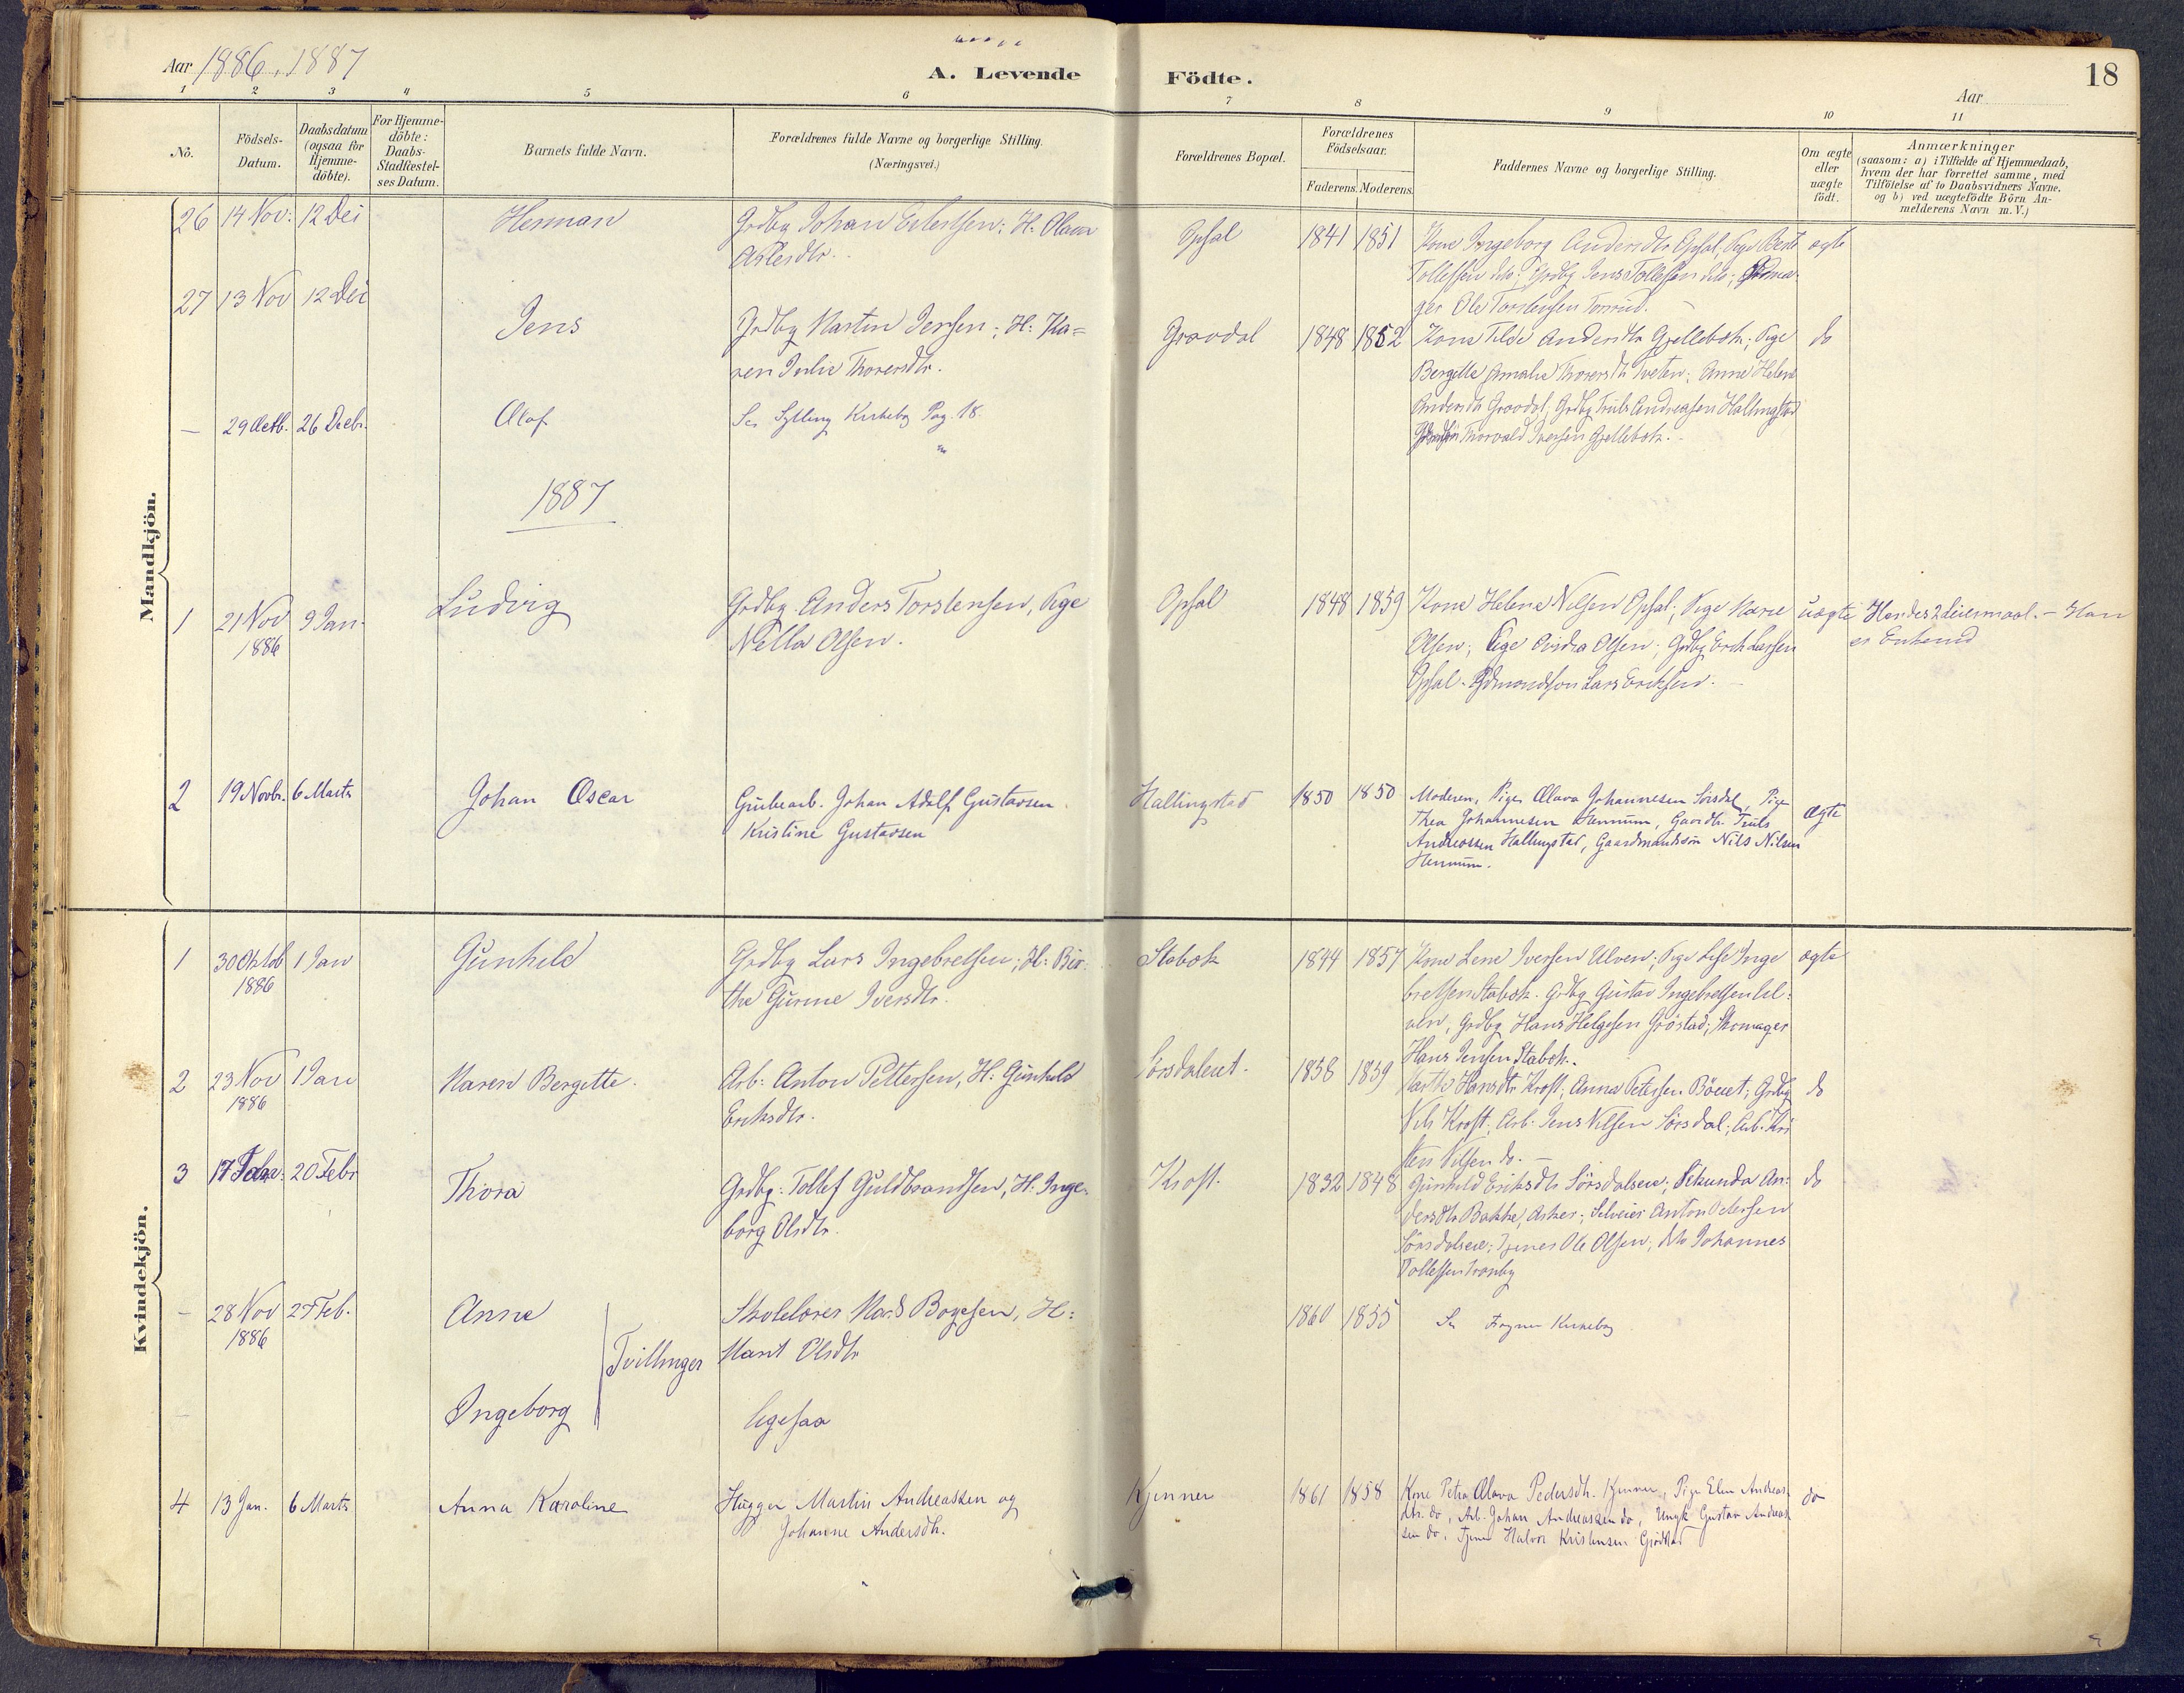 Aar 1886, 1887
A. Levende Födte.
Aar
18
1 2 3 4 5 6 7 8 9 10 11
No.
Födsels-Datum.
Daabsdatum (ogsaa for Hjemme-döbte).
For Hjemme-döbte: Daabs-Stadfæstel-ses Datum.
Barnets fulde Navn.
Forældrenes fulde Navne og borgerlige Stilling. (Næringsvei.)
Forældrenes Bopæl.
Forældrenes Födselsaar.
Faderens. Moderens.
Faddernes Navne og borgerlige Stilling.
Om ægte eller uægte födt.
Anmærkninger
(saasom: a) i Tilfælde af Hjemmedaab,
hvem der har forrettet samme, med
Tilföielse af to Daabsvidners Navne,
og b) ved uægtefödte Börn An-
melderens Navn m. V.)
Mandkjön.
26 14 Nov: 12 Dec Herman Grdbg Johan Eilertsen; H. Olava
Opsal 1841 1851 Kone Ingeborg Andersdtr Opsal, Pige Berte ægte
Tollefsen do; Grdbg Jens Tollefsen do;
ger Ole Torstensen
27 13 Nov 12 Dec Jens Grdbg Martin Jensen; H: Ka=
ren Julie Thorersdtr.
Gravdal 1848 1852 Kone Tilde Andersdtr Gjellebæk; Pige do
Bergitte Amalie Thorersdtr Tveten; Anne Helene
Andersdtr Gravdal; Grdbg Truls Andreasen Hallingstad
Thorvald Iversen Gjellebæk.
— 29 Octb. 26 Decbr. Olaf Se Sylling Kirkebog Pag. 18.
1887
1 21 Nov 1886 9 Jan. Ludvig Grdbg. Anders Torstensen, Pige
Nella Olsen.
Opsal 1848 1859 Kone Helene Nilsen Opsal; Pige Maren uægte Hendes 2 leiermaal. — Han
Olsen; Pige Olsen; Grdbg Erik Larsen er Enkemd
Opsal. Grdmandssøn Lars Eriksen.
2 19 Novbr. 6 Marts Johan Oscar Grubearb. Johan Adolf Gustavsen.
Kristine Gustavsen
Hallingstad 1850 1850 Moderen, Pige Olava Johannesen Sørsdal, Pige ægte
Thea Johannesen Hennum, Gaardbr. Truls
Andreassen Hallingstad, Gaardmandssøn Nils Nilsen
Hennum.
Kvindekjön.
1 30 Oktob 1886 1 Jan Gunhild Grdbg Lars Ingebretsen; H: Ber-
the Gurine Iversdtr.
Stabæk 1844 1857 Kone Lene Iversen Ulven; Pige Lise Inge ægte
bretsen Stabæk. Grdbg Gustav Ingebretsen Ul-
ven, Grdbg Hans Helgesen Gröstad; Skomager
Hans Jensen Stabæk.
2 23 Nov 1886 1 Jan Maren Bergitte. Arb: Anton Pettersen, H: Gunhild
Eriksdtr.
Sørsdalen. 1858 1859 Marthe Hansdtr Kroft; Anna Petersen Böen; Grdbg do
Nils Kroft; Arb. Jens Nilsen Sörsdal; Arb. Kri
sten Nilsen do. —
3 17 20 Febr Thora Grdbg: Tollef Guldbrandsen, H: Inge-
borg Olsdtr.
Kroft. 1832 1848 Gunhild Eriksdtr Sörsdalen; Sekunda An- do
dersdtr Bakke, Asker; Selveier Anton Petersen
Sörsdalen; Tjener Ole Olsen, do Johannes
Tollefsen Tranby
— 28 Nov 1886 27 Feb. Anne Skolelærer Mads Boyesen, H:
Marit Olsdtr
1860 1855 Se Kirkebog
Tvillinger
Ingeborg ligesaa
4 13 Jan. 6 Marts Anna Karoline Hugger Martin Andreassen og
Johanne Andersdtr.
Kjenner 1861 1858 Kone Petra Olava Pedersdtr. Kjenner, Pige Elen Andreas- do
dtr. do, Arb. Johan Andreassen do, Ungk. Gustav Andreas
sen do, Tjener Halvor Kristensen Gjödstad